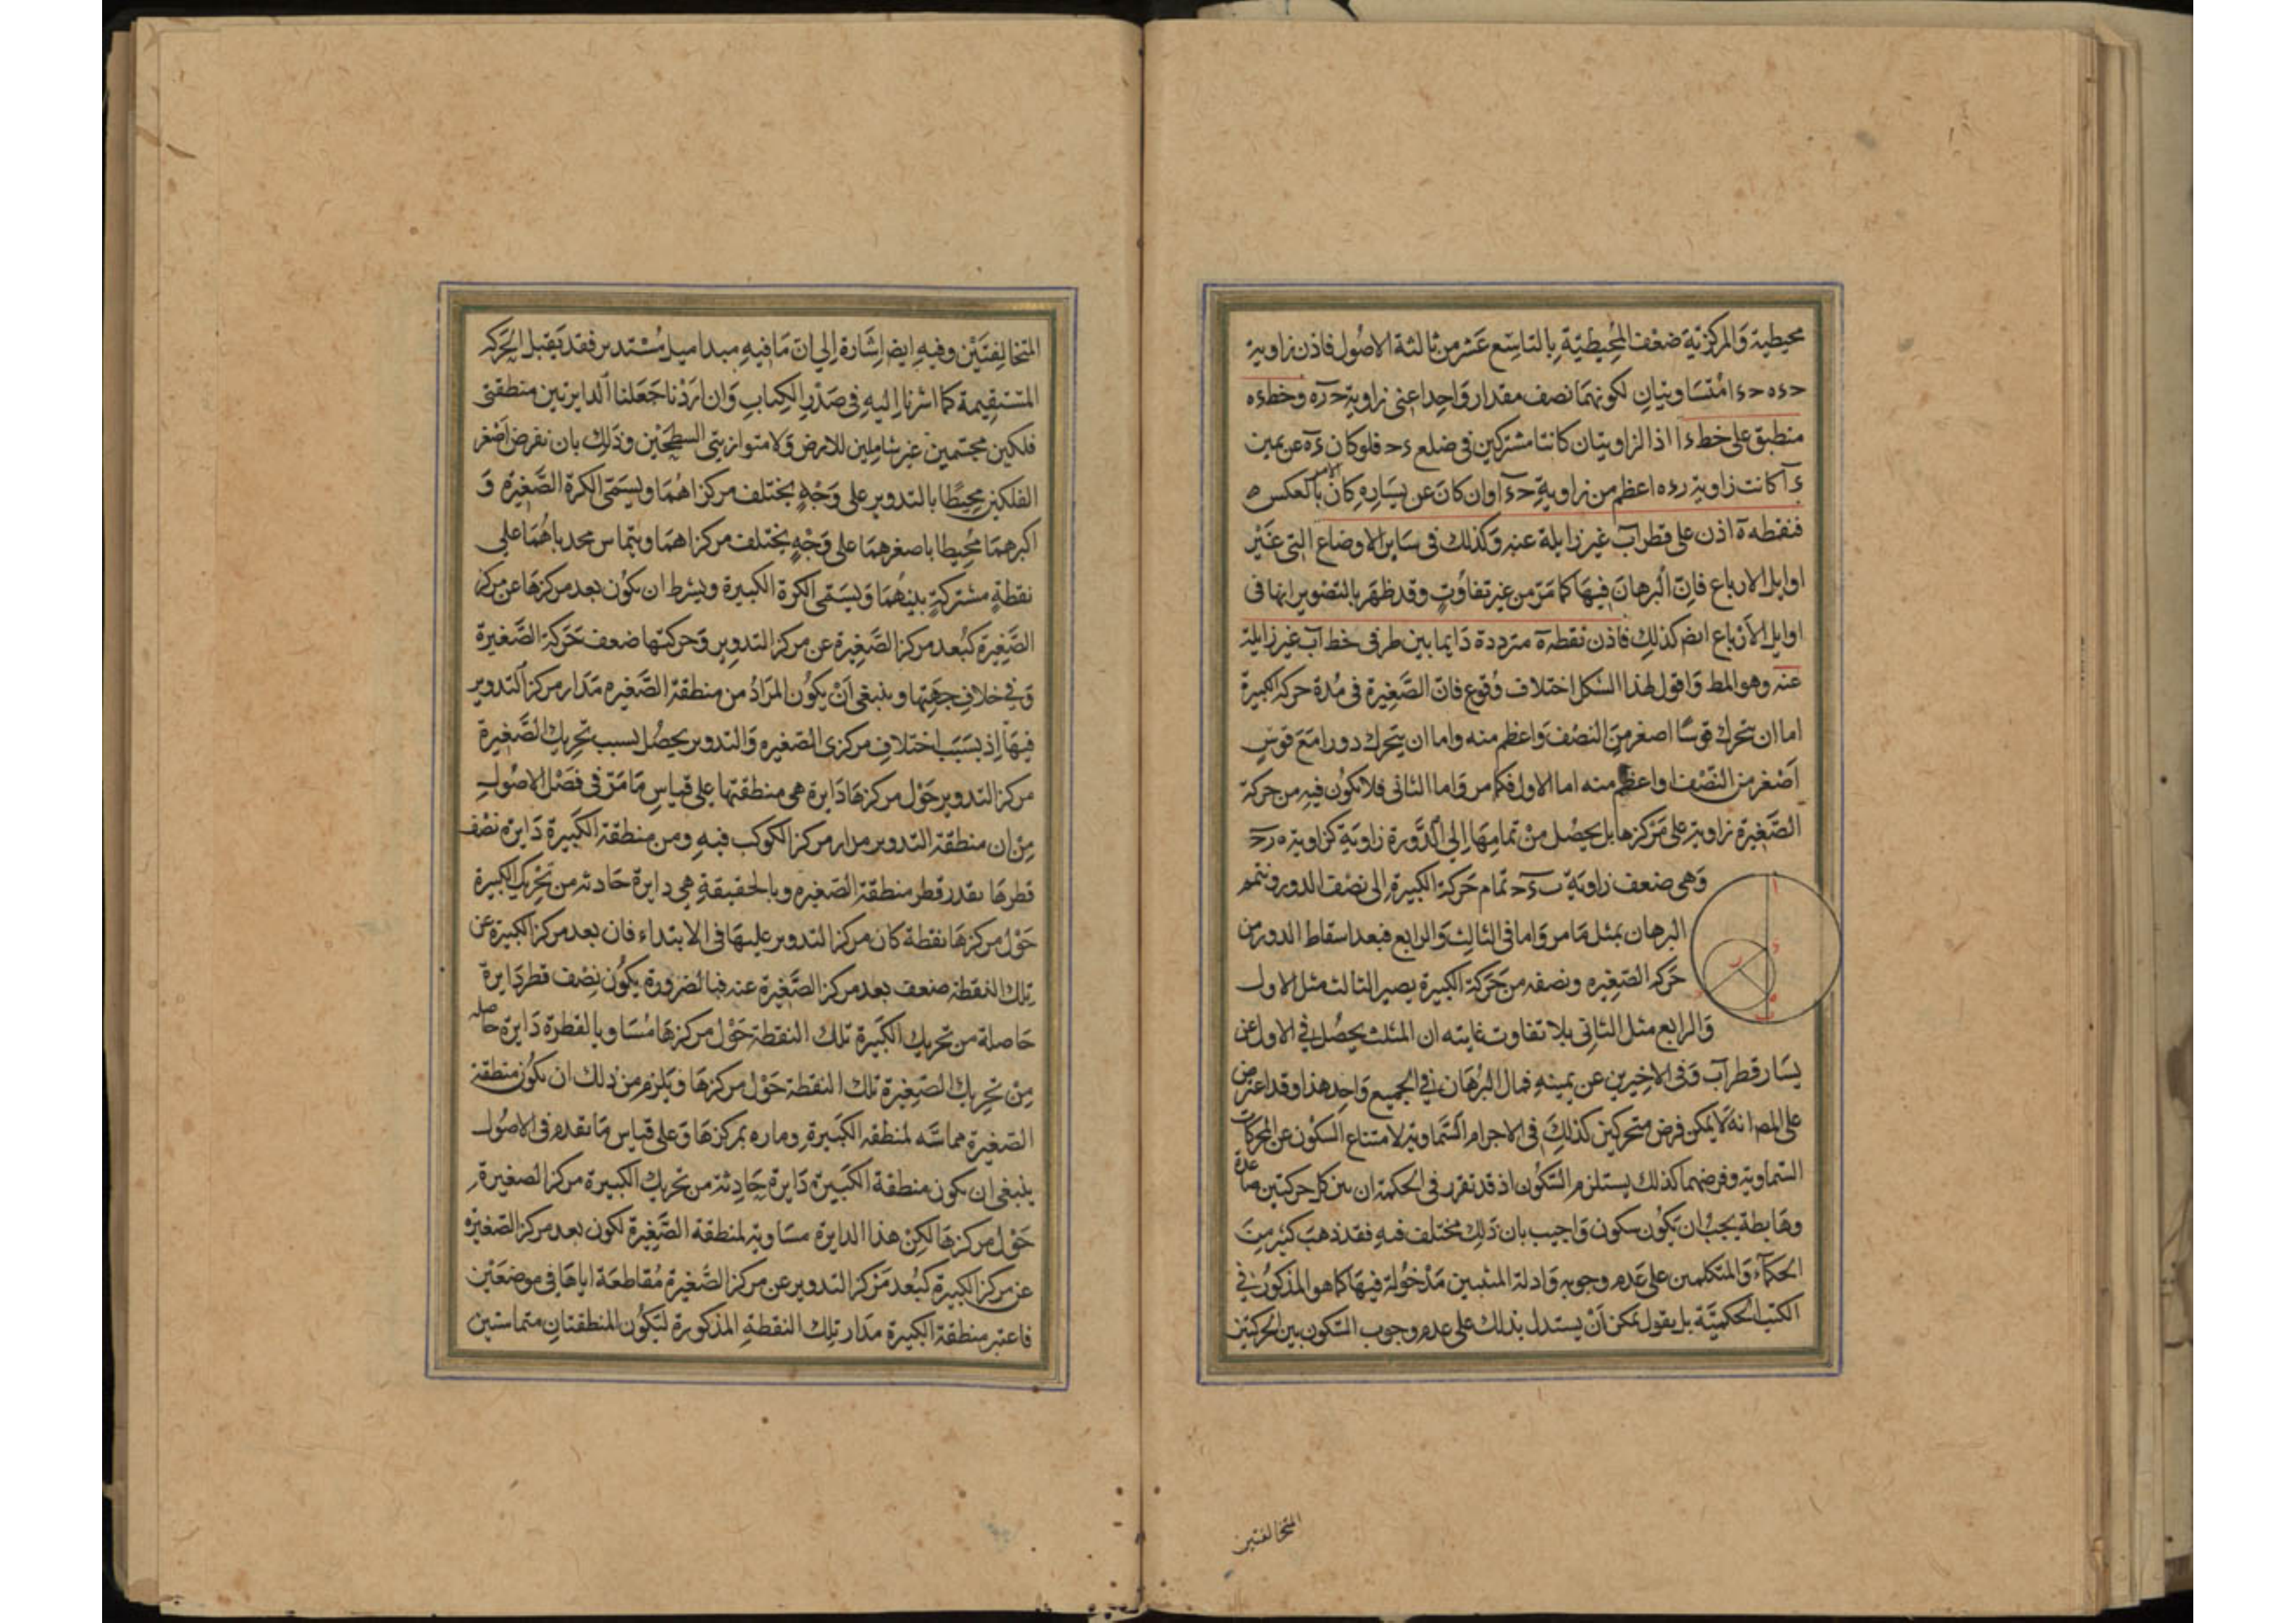 محيطية وَالمركزية ضعف المُحيطيّة بِالتاسِع عَشر من ثالثة الاصُول فاذن زاوية
حءه حءا متسَاويتان لكونهمَا نصف مقدار وَاحدا عنى زاوية حره وخط ءه
منطبق على خط ءا اذ الزاويتان كانتا مشتركين فى ضلع ءح فلو كان ءه عن يمين
ءا كانت زاوية رءه اعظم من زاوية حءا وان كان عن يسَاره كان الامر بالعكس ه
فنقطه ه اذن على قطر اب غير زايلة عنه وَكذلك فى سَاير الاوضاع التى غَيْر
اوايل الارباع فانّ البرهانَ فيهَا كما مَرّ من غير تفاوُتٍ وقد ظهَر بالتصْوير انها فى
اوايل الاَرْباع ايض كذلك فاذن نقطة ه مترددة دَايما بين طرفى خط اب غير زايلة
عنه وهو المط وَاقول لهذا الشكل اختلاف وُقوع فانّ الصَّغيرة فى مُدة حركه الكبيرة
اما ان يتحرك قوسًا اصغر منَ النصْف وَاعظم منه واما ان يتحرك دورا مَعَ قوسٍ
اَصْغر من النّصْف واعظم منه اما الاول فكما مر وَاما الثانى فلا يكوُن فيه من حركة
الصَّغيرة زاوية على مَرْكزها بل يحصُل منْ تمامِهَا الى الدَّورة زاويَة كزاوية ه رح
وَهى ضعف زاويَة ب ءح تمام حَركة الكبيرة الى نصْف الدور ونتمم
البرهان بمثل مَا مر وَاما فى الثالث وَالرابع فبعد اسقاط الدور من
حَركه الصّغيره ونصفه من حَرَكة الكبيرة يصير الثالث مثل الاول
وَالرابع مثل الثانى بلا تفاوت غايته ان المثلث يحصُل فى الاول عن
يسَار قطر اب وَفى الاخيرين عن يمينهِ فمال البُرهَان فى الجميع وَاحد هذا وقد اعترض
على المص انهُ لا يمكن فرض متحركين كذلكَ فى الاجرام السَّماويّة لامتناع السّكوُن عن المحركات
السّماويّة وفرضهما كذلك يستلزم السّكوُن اذ قد تقرر فى الحكمة ان بين كل حركتين صاعدة
وهَابطة يجبُ ان يَكوُن سكون وَاجيب بان ذَلك مختلف فيهِ فقد ذهبَ كثير منَ
الحكمآء وَالمتكلمين على عَدم وجوبه وَادلة المثبتين مَدْخُولة فيهَا كما هو المذكوُر فى
الكتب الحكميّة بل يقول يمكن اَنْ يستدل بذلك على عدم وجوب السّكون بين الحركتين
المتخالفتين
المتخالِفتَيْن وفيهِ ايض اِشَارة اِلى انّ مَا فيهِ مبدا ميل مُسْتدير فقد يَقبل الحَرَكه
المُسْتقِيمة كما اشرنا اليهِ فى صَدْرِ الكِتابِ وَان ارَدْنا جَعَلنا الدايرتين منطقتى
فلكين مجسّمين غير شامِلين للارض وَلا متوازيتى السطحَيْن وذلك بان نفرض اصْغر
الفلكين محيطا بالتدوير على وَجْهٍ يختلف مركزاهُمَا ويسَمّى الكرة الصَّغيرة وَ
اكبرهمَا مُحيطا باصغرهمَا على وَجْهٍ يختلف مركزاهمَا ويتماس محدباهُمَا على
نقطةٍ مشتركةٍ بينهُمَا وَيسَمّى الكرة الكبيرة ويشرط ان يكوُن بعد مركزهَا عن مركز
الصَّغِيرة كبُعد مركز الصَّغِيرة عن مركز التدوير وَحركتها ضعف حَرَكة الصَّغيرة
وَفى خلافِ جهَتِها وينبغى اَنْ يكوُن المرَادُ من منطقة الصَّغيره مَدَار مركز التدوير
فيهَا اِذ بسَبَب اختلافِ مركزى الصّغيره وَالتدوير يحصُل بسبب تحريك الصَّغِيرة
مركز التدوير حَوْل مركزهَا دَايرة هى منطقتها على قياسِ مَا مَرّ فى فصْل الاصُولِ
مِنْ ان منطقة التدوير مدار مركز الكوكب فيهِ ومن منطقة الكَبيرة دَايرة نصْف
قطرهَا بقدر قطر منطقة الصّغيره وبالحقيقةِ هى دايرة حَادثه من تحْرِيك الكبيرة
حَوْل مركزهَا نقطة كان مركز التدوير عليهَا فى الابتداء فان بعد مركز الكبيرة عن
تلك النقطة ضعف بعد مركز الصَّغيرة عنه فبالضرورة يكوُن نصف قطر دَايرة
حَاصلة من تحريك الكَبيرة تلك النقطة حَوْل مركزهَا مُسَاويا لقطر دَايرة حاصله
مِنْ تحرِيك الصّغِيرة تلك النقطة حَوْل مركزهَا وَيلزم من ذلك ان يكوُن منطقة
الصّغيرة مماسَّه لمنطقه الكبيرةِ وماره بمركزهَا وَعلى قياس مَا تقدم فى الاصُول
ينبغى ان يكون منطقة الكَبيرة دَايرة حَادِثة من تحريك الكبيرة مركز الصغيرةِ
حَوْل مركزهَا لكِنْ هذا الدايرة مسَاوية لمنطقة الصَّغِيرة لكون بعد مركز الصّغيرَه
عن مركز الكبيرة كبُعد مَركز التدوير عن مركز الصَّغيرة مُقاطعَة اياهَا فى موضعَيْن
فاعتبر منطقة الكبيرة مدَار تِلك النقطةِ المذكورة لتكوُن المنطقتانِ متماستين